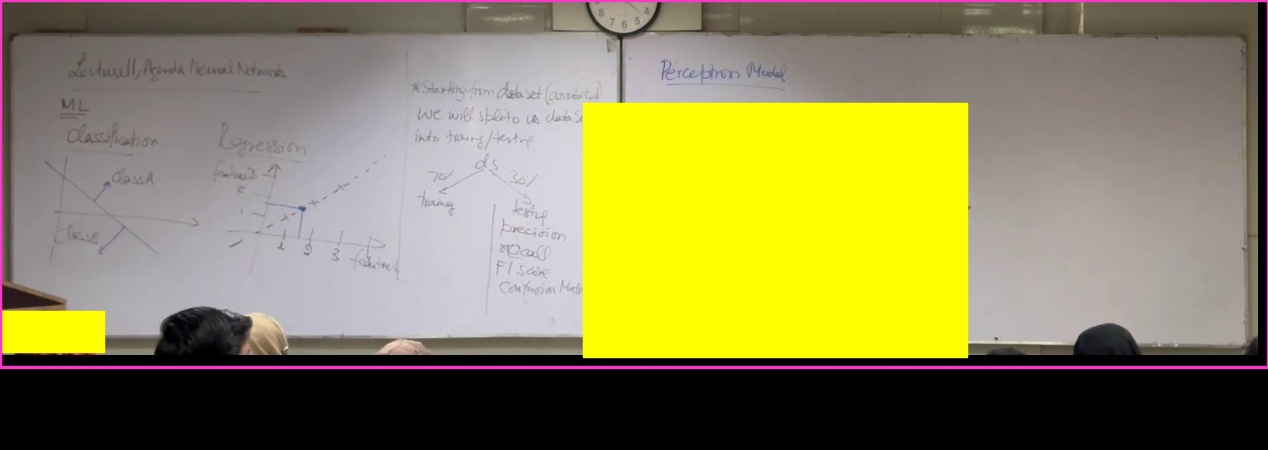 Lecture 11, Agenda Neural Networks
ML
Classification
class A
class B
Regression
feature 2
2
1
1 2 3 4
feature 1
*Starting from data set (annotated)
we will split our data se
into traing/testig
ds
70% 30%
traing
testig
precision
recall
F1 score
Confusion Matr
Perceptron Model
8 7 6 5 4